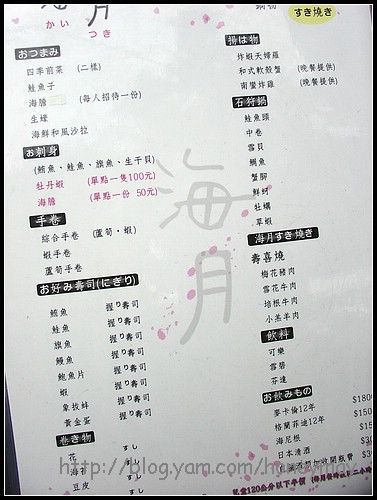 海月
かい つき
おつまみ
四季前菜 (二樣)
鮭魚子
海膽 (每人招待一份)
生蠔
海鮮和風沙拉
お刺身
(鮪魚、鮭魚、旗魚、生干貝)
牡丹蝦 (單點一隻100元)
海膽 (單點一份 50元)
手卷
綜合手卷 (蘆筍、蝦)
蝦手卷
蘆筍手卷
お好み壽司(にぎり)
鮪魚 握り壽司
鮭魚 握り壽司
旗魚 握り壽司
鰻魚 握り壽司
鮑魚片 握り壽司
蝦 握り壽司
象拔蚌 握り壽司
黃金蛋 握り壽司
巻き物
花 すし
海 すし
豆皮 すし
鍋物
すき燒き
揚は物
炸蝦天婦羅
和式軟殼蟹 (晚餐提供)
南蠻炸雞 (晚餐提供)
石狩鍋
鮭魚頭
中卷
雪貝
鯛魚
蟹腳
鮮蚵
牡蠣
草蝦
海月すき燒き
壽喜燒
梅花豬肉
雪花牛肉
培根牛肉
小羔羊肉
飲料
可樂
雪碧
芬達
お飲みもの
麥卡倫12年 $180
格蘭菲迪12年 $150
海尼根
日本清酒
海月
http://blog.yam.com/hu